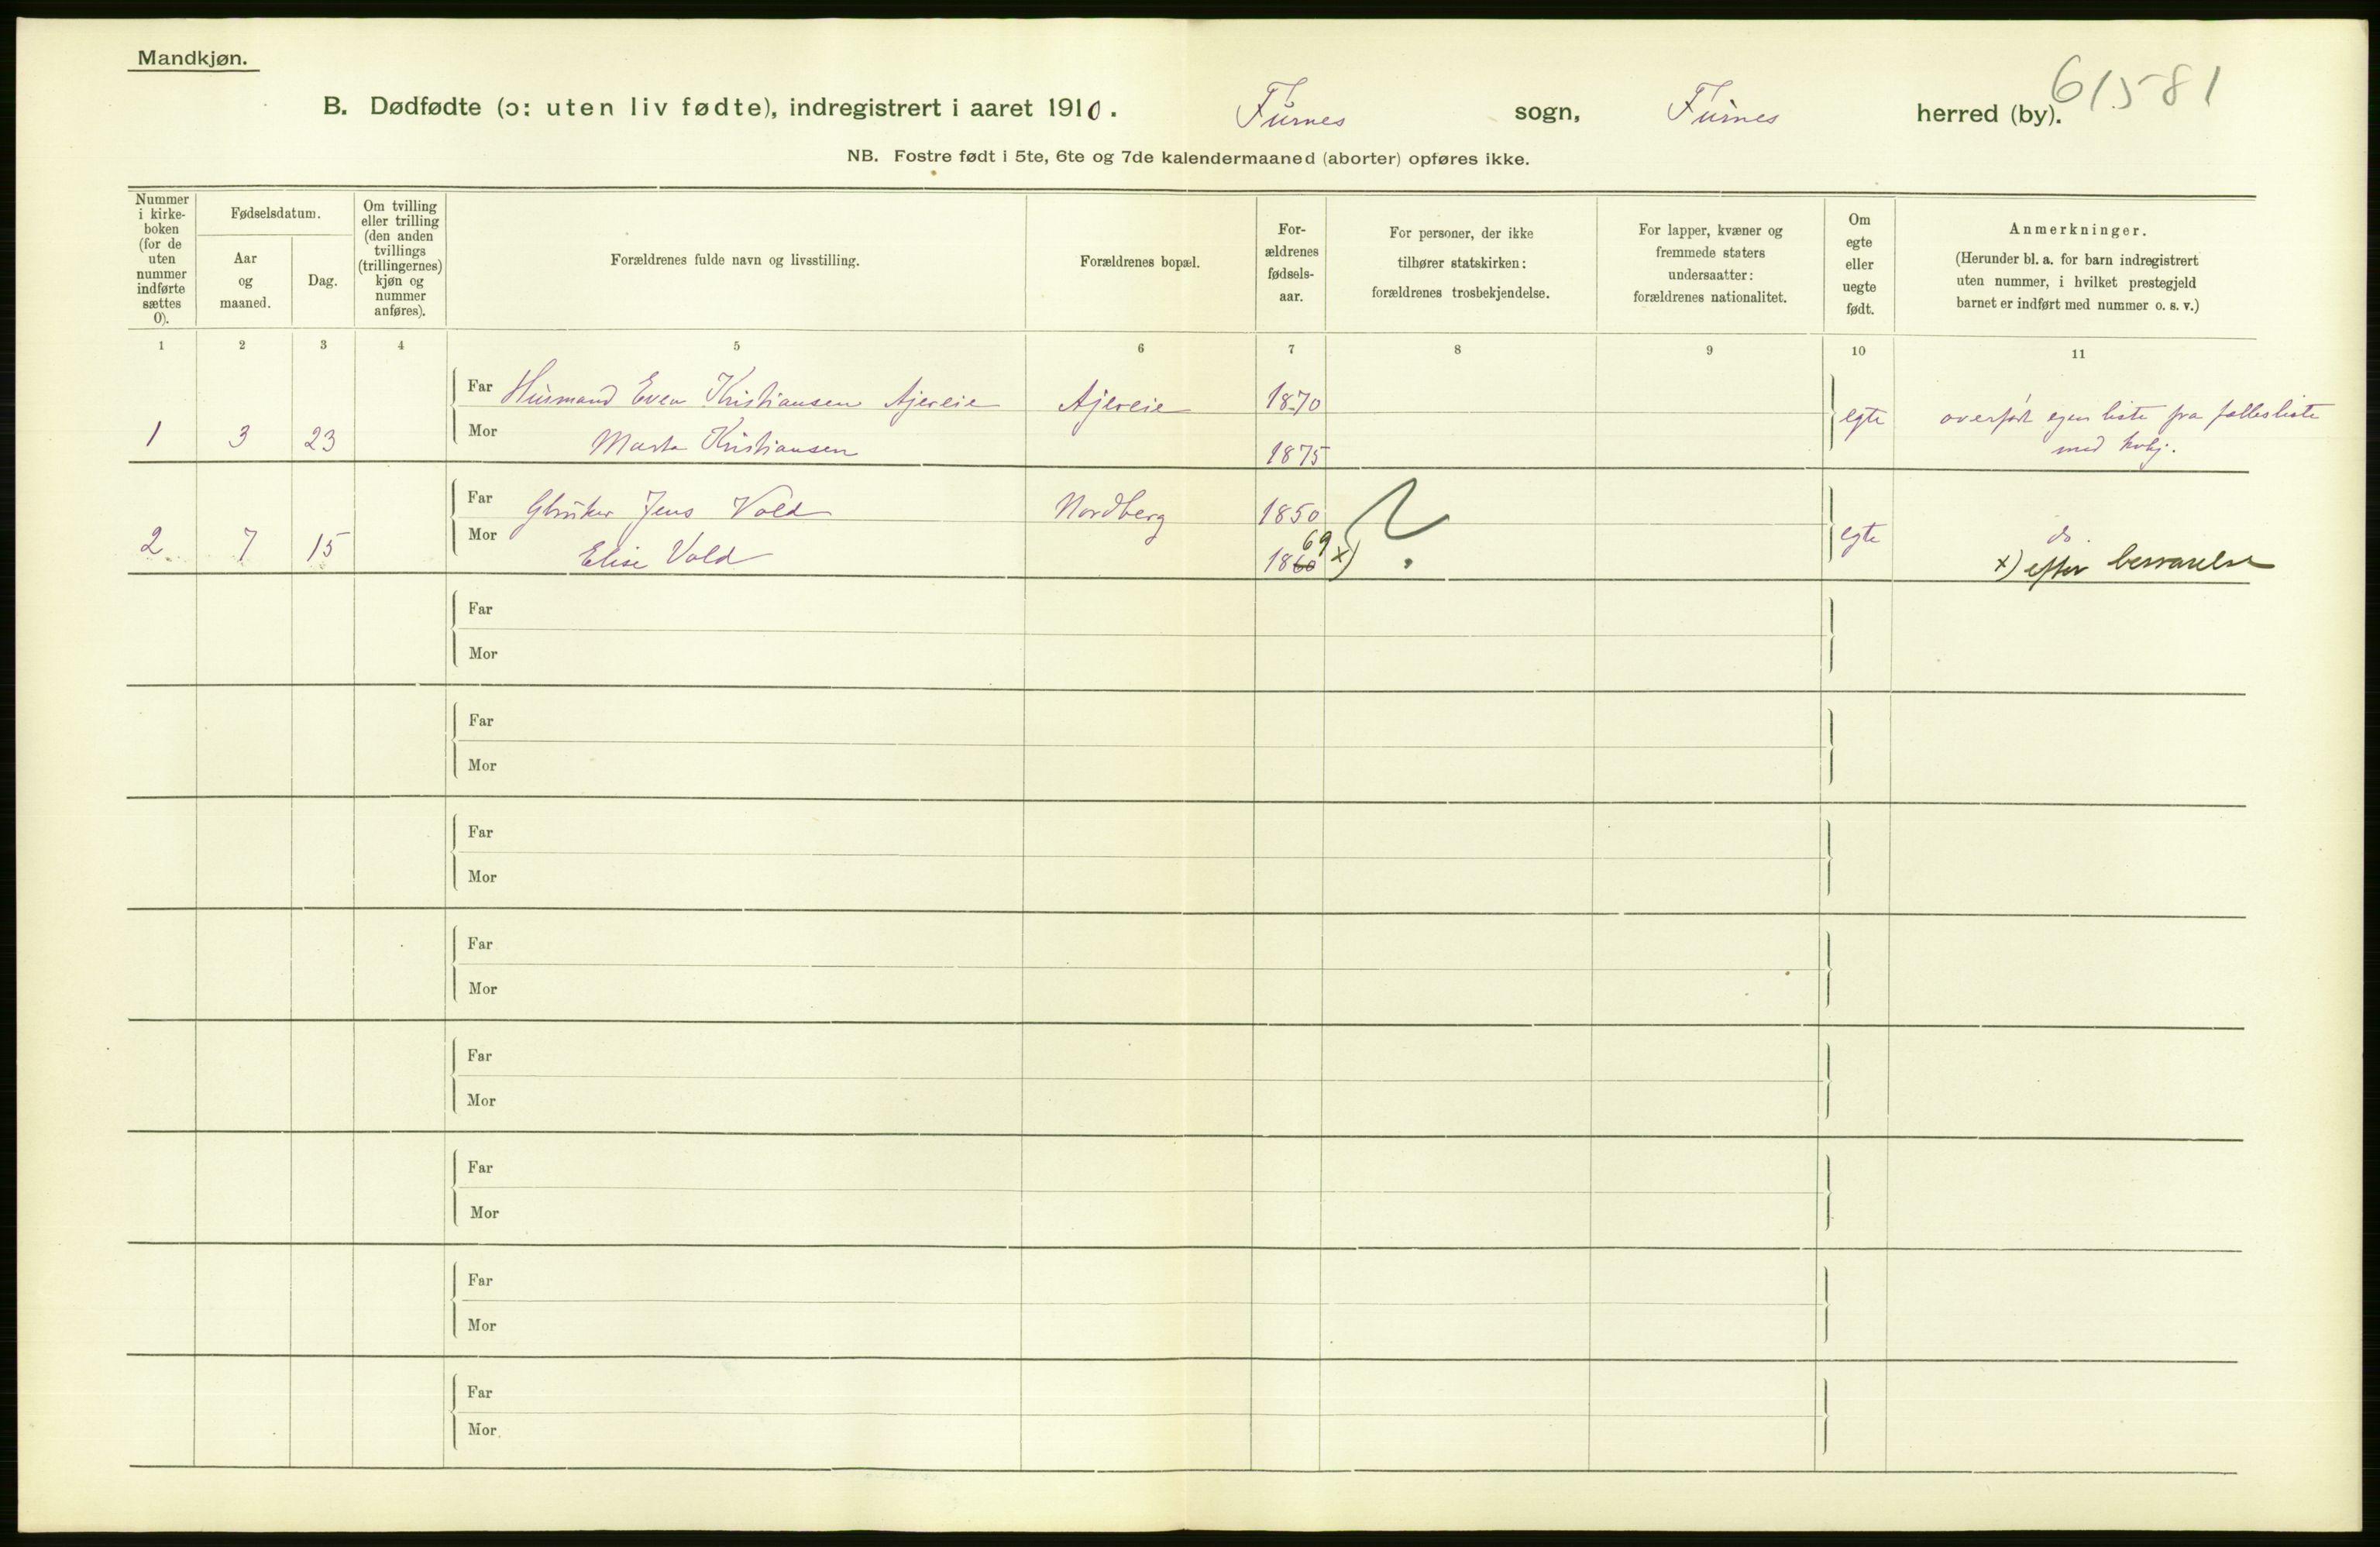 Mandkjøn.
61581
B. Dødfødte (ɔ: uten liv fødte), indregistrert i aaret 1910. Furnes sogn, Furnes herred (by).
NB. Fostre født i 5te, 6te og 7de kalendermaaned (aborter) opføres ikke.
Nummer
i kirke-
boken
(for de
uten
nummer
indførte
sættes
0).
Fødselsdatum.
Aar
og
maaned.
Dag.
Om tvilling
eller trilling
(den anden
tvillings
(trillingernes)
kjøn og
nummer
anføres).
Forældrenes fulde navn og livsstilling.
Forældrenes bopæl.
For-
ældrenes
fødsels-
aar.
For personer, der ikke
tilhører statskirken:
forældrenes trosbekjendelse.
For lapper, kvæner og
fremmede staters
undersaatter:
forældrenes nationalitet.
Om
egte
eller
uegte
født.
Anmerkninger.
(Herunder bl. a. for barn indregistrert
uten nummer, i hvilket prestegjeld
barnet er indført med nummer o. s. v.)
1 2 3 4 5 6 7 8 9 10 11
Far Husmand Even Kristiansen Ajereie Ajereie 1870
1 3 23 Mor Marta Kristiansen 1875 egte overført egen liste fra fællesliste
med kvkj.
Far Gbruker Jens Vold Nordberg 1850 ?
2 7 15 Mor Elise Vold 1860 69 x) egte do.
x) efter besvarelse
Far
Mor
Far
Mor
Far
Mor
Far
Mor
Far
Mor
Far
Mor
Far
Mor
Far
Mor